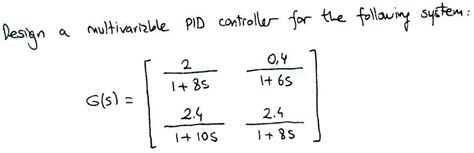 Design a multivarizble PID controller for the following system:
G(s) = [ 2 / 1+8s   0,4 / 1+6s
2.4 / 1+10s   2.4 / 1+8s ]